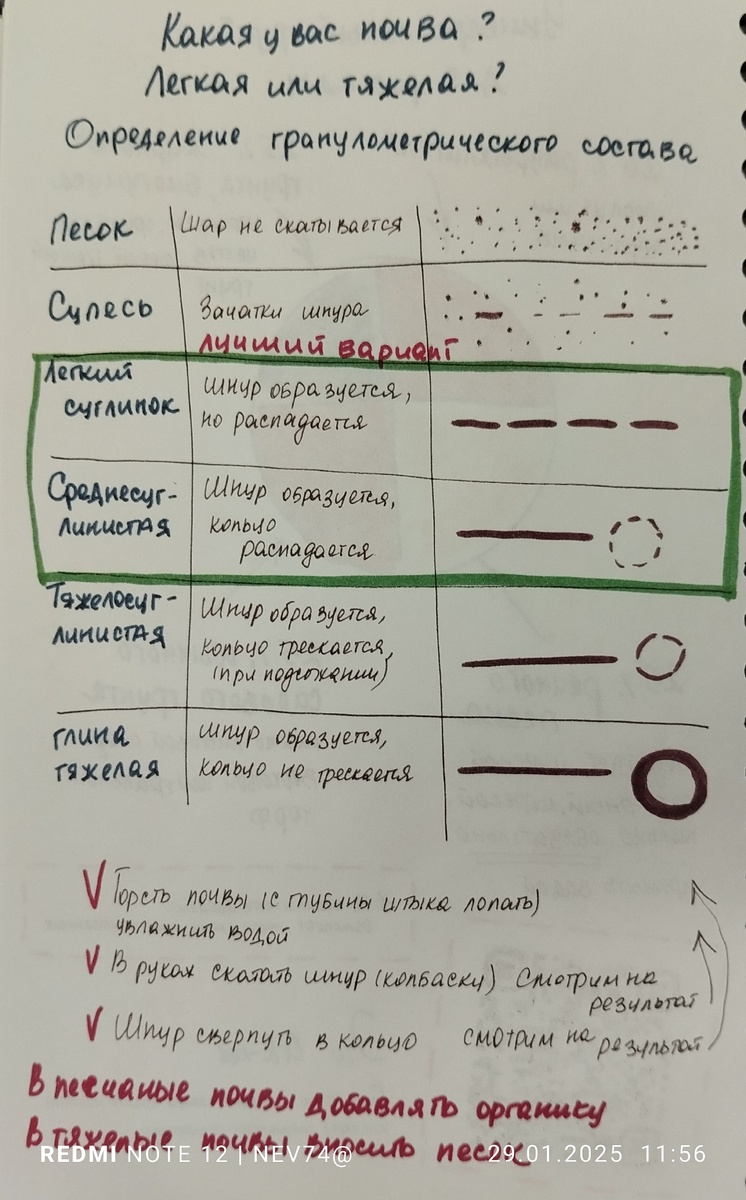 Какая у вас почва?
Легкая или тяжелая?
Определение гранулометрического состава
Песок
Шар не скатывается
Супесь
Зачатки шнура
лучший вариант
Легкий
суглинок
Шнур образуется,
но распадается
Среднесуг-
линистая
Шнур образуется,
кольцо
распадается
Тяжелосуг-
линистая
Шнур образуется,
кольцо трескается,
(при подсыхании)
глина
тяжелая
Шнур образуется,
кольцо не трескается
V Горсть почвы (с глубины штыка лопаты)
увлажнить водой
V В руках скатать шнур (колбаску) Смотрим на
результат
V Шнур свернуть в кольцо смотрим на
результат
В песчаные почвы добавлять органику
В тяжелые почвы вносить песок
REDMI NOTE 12 | NEV74@ 29.01.2025 11:56